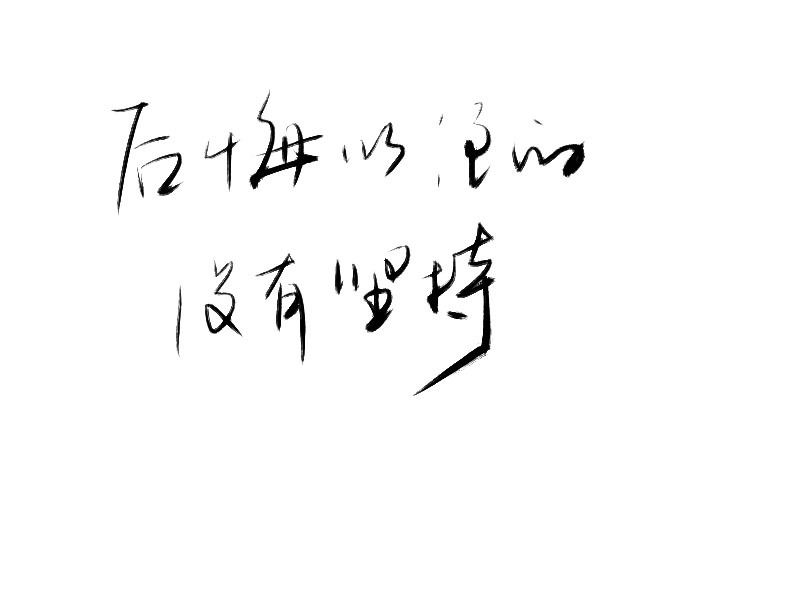 后悔以往的
没有坚持